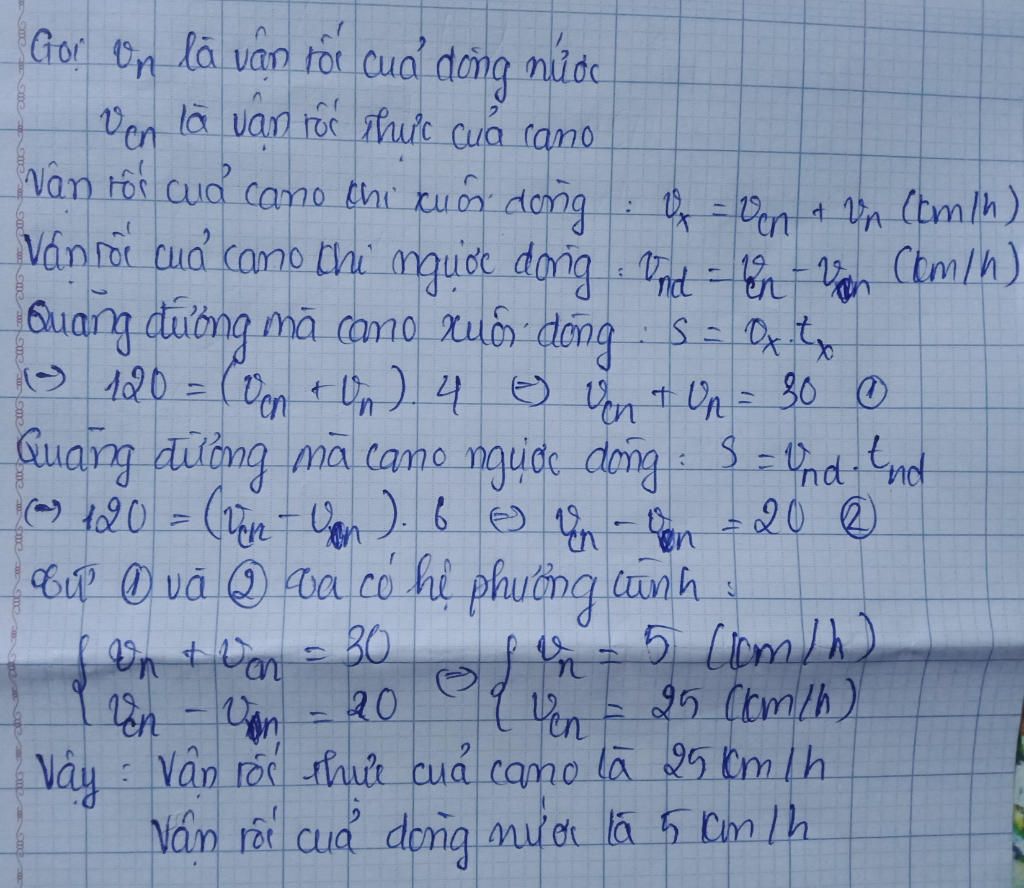 Gọi vₙ là vận tốc của dòng nước
v_cn là vận tốc thực của cano
Vận tốc của cano khi xuôi dòng : vₓ = v_cn + vₙ (km/h)
Vận tốc của cano khi ngược dòng : v_nd = v_cn - vₙ (km/h)
Quãng đường mà cano xuôi dòng : S = vₓ.tₓ
(=) 120 = (v_cn + vₙ). 4 (=) v_cn + vₙ = 30 ①
Quãng đường mà cano ngược dòng : S = v_nd.t_nd
(=) 120 = (v_cn - vₙ). 6 (=) v_cn - vₙ = 20 ②
Từ ① và ② ta có hệ phương trình :
{ vₙ + v_cn = 30 (=) { vₙ = 5 (km/h)
v_cn - vₙ = 20 v_cn = 25 (km/h)
Vậy : Vận tốc thực của cano là 25 km/h
Vận tốc của dòng nước là 5 km/h